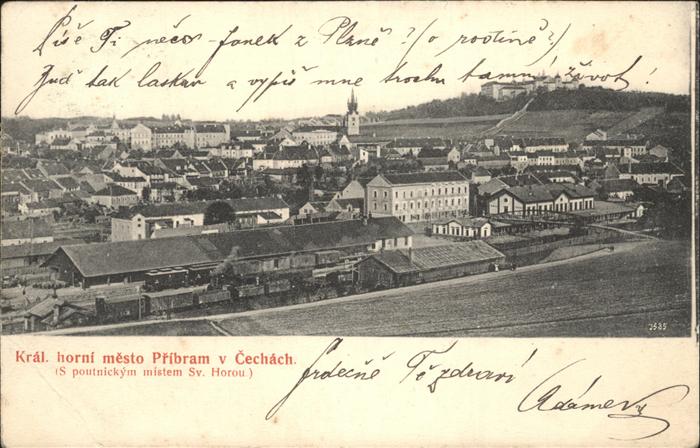 Píše Ti něco Janek z Plzně? (o rodině?)
Buď tak laskav a vypiš mne trochu tamní život!
7535
Král. horní město Příbram v Čechách.
(S poutnickým místem Sv. Horou.)
Srdečně Tě zdraví
Adámek